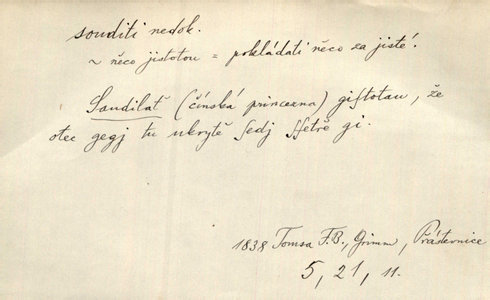 souditi nedok.
~ něco jistotou = pokládati něco za jisté.
Saudilať (čínská princezna) gistotau, že
otec gegj tu ukrytě sedj ssetřě gi.
1838 Tomsa F.B., Grimm, Prástewnice
5, 21, 11.